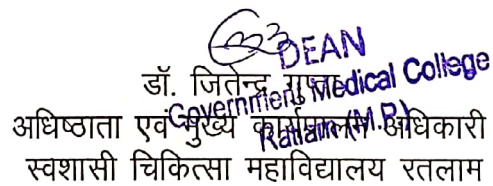 DEAN
Government Medical College
Ratlam (M.P.)
डॉ. जितेन्द्र गुप्ता
अधिष्ठाता एवं मुख्य कार्यपालन अधिकारी
स्वशासी चिकित्सा महाविद्यालय रतलाम